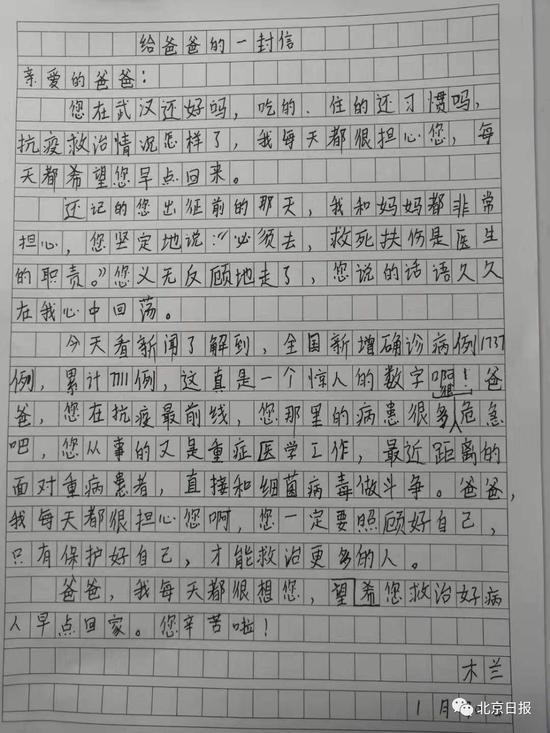 给爸爸的一封信
亲爱的爸爸：
您在武汉还好吗，吃的、住的还习惯吗，
抗疫救治情况怎样了，我每天都很担心您，每
天都希望您早点回来。
还记的您出征前的那天，我和妈妈都非常
担心，您坚定地说：“必须去，救死扶伤是医生
的职责。”您义无反顾地走了，您说的话语久久
在我心中回荡。
今天看新闻了解到，全国新增确诊病例1737
例，累计7711例，这真是一个惊人的数字啊！爸
爸，您在抗疫最前线，您那里的病患很多很危急
吧，您从事的又是重症医学工作，最近距离的
面对重病患者，直接和细菌病毒做斗争。爸爸，
我每天都很担心您啊，您一定要照顾好自己，
只有保护好自己，才能救治更多的人。
爸爸，我每天都很想您，望希您救治好病
人早点回家。您辛苦啦！
木兰
1月
北京日报